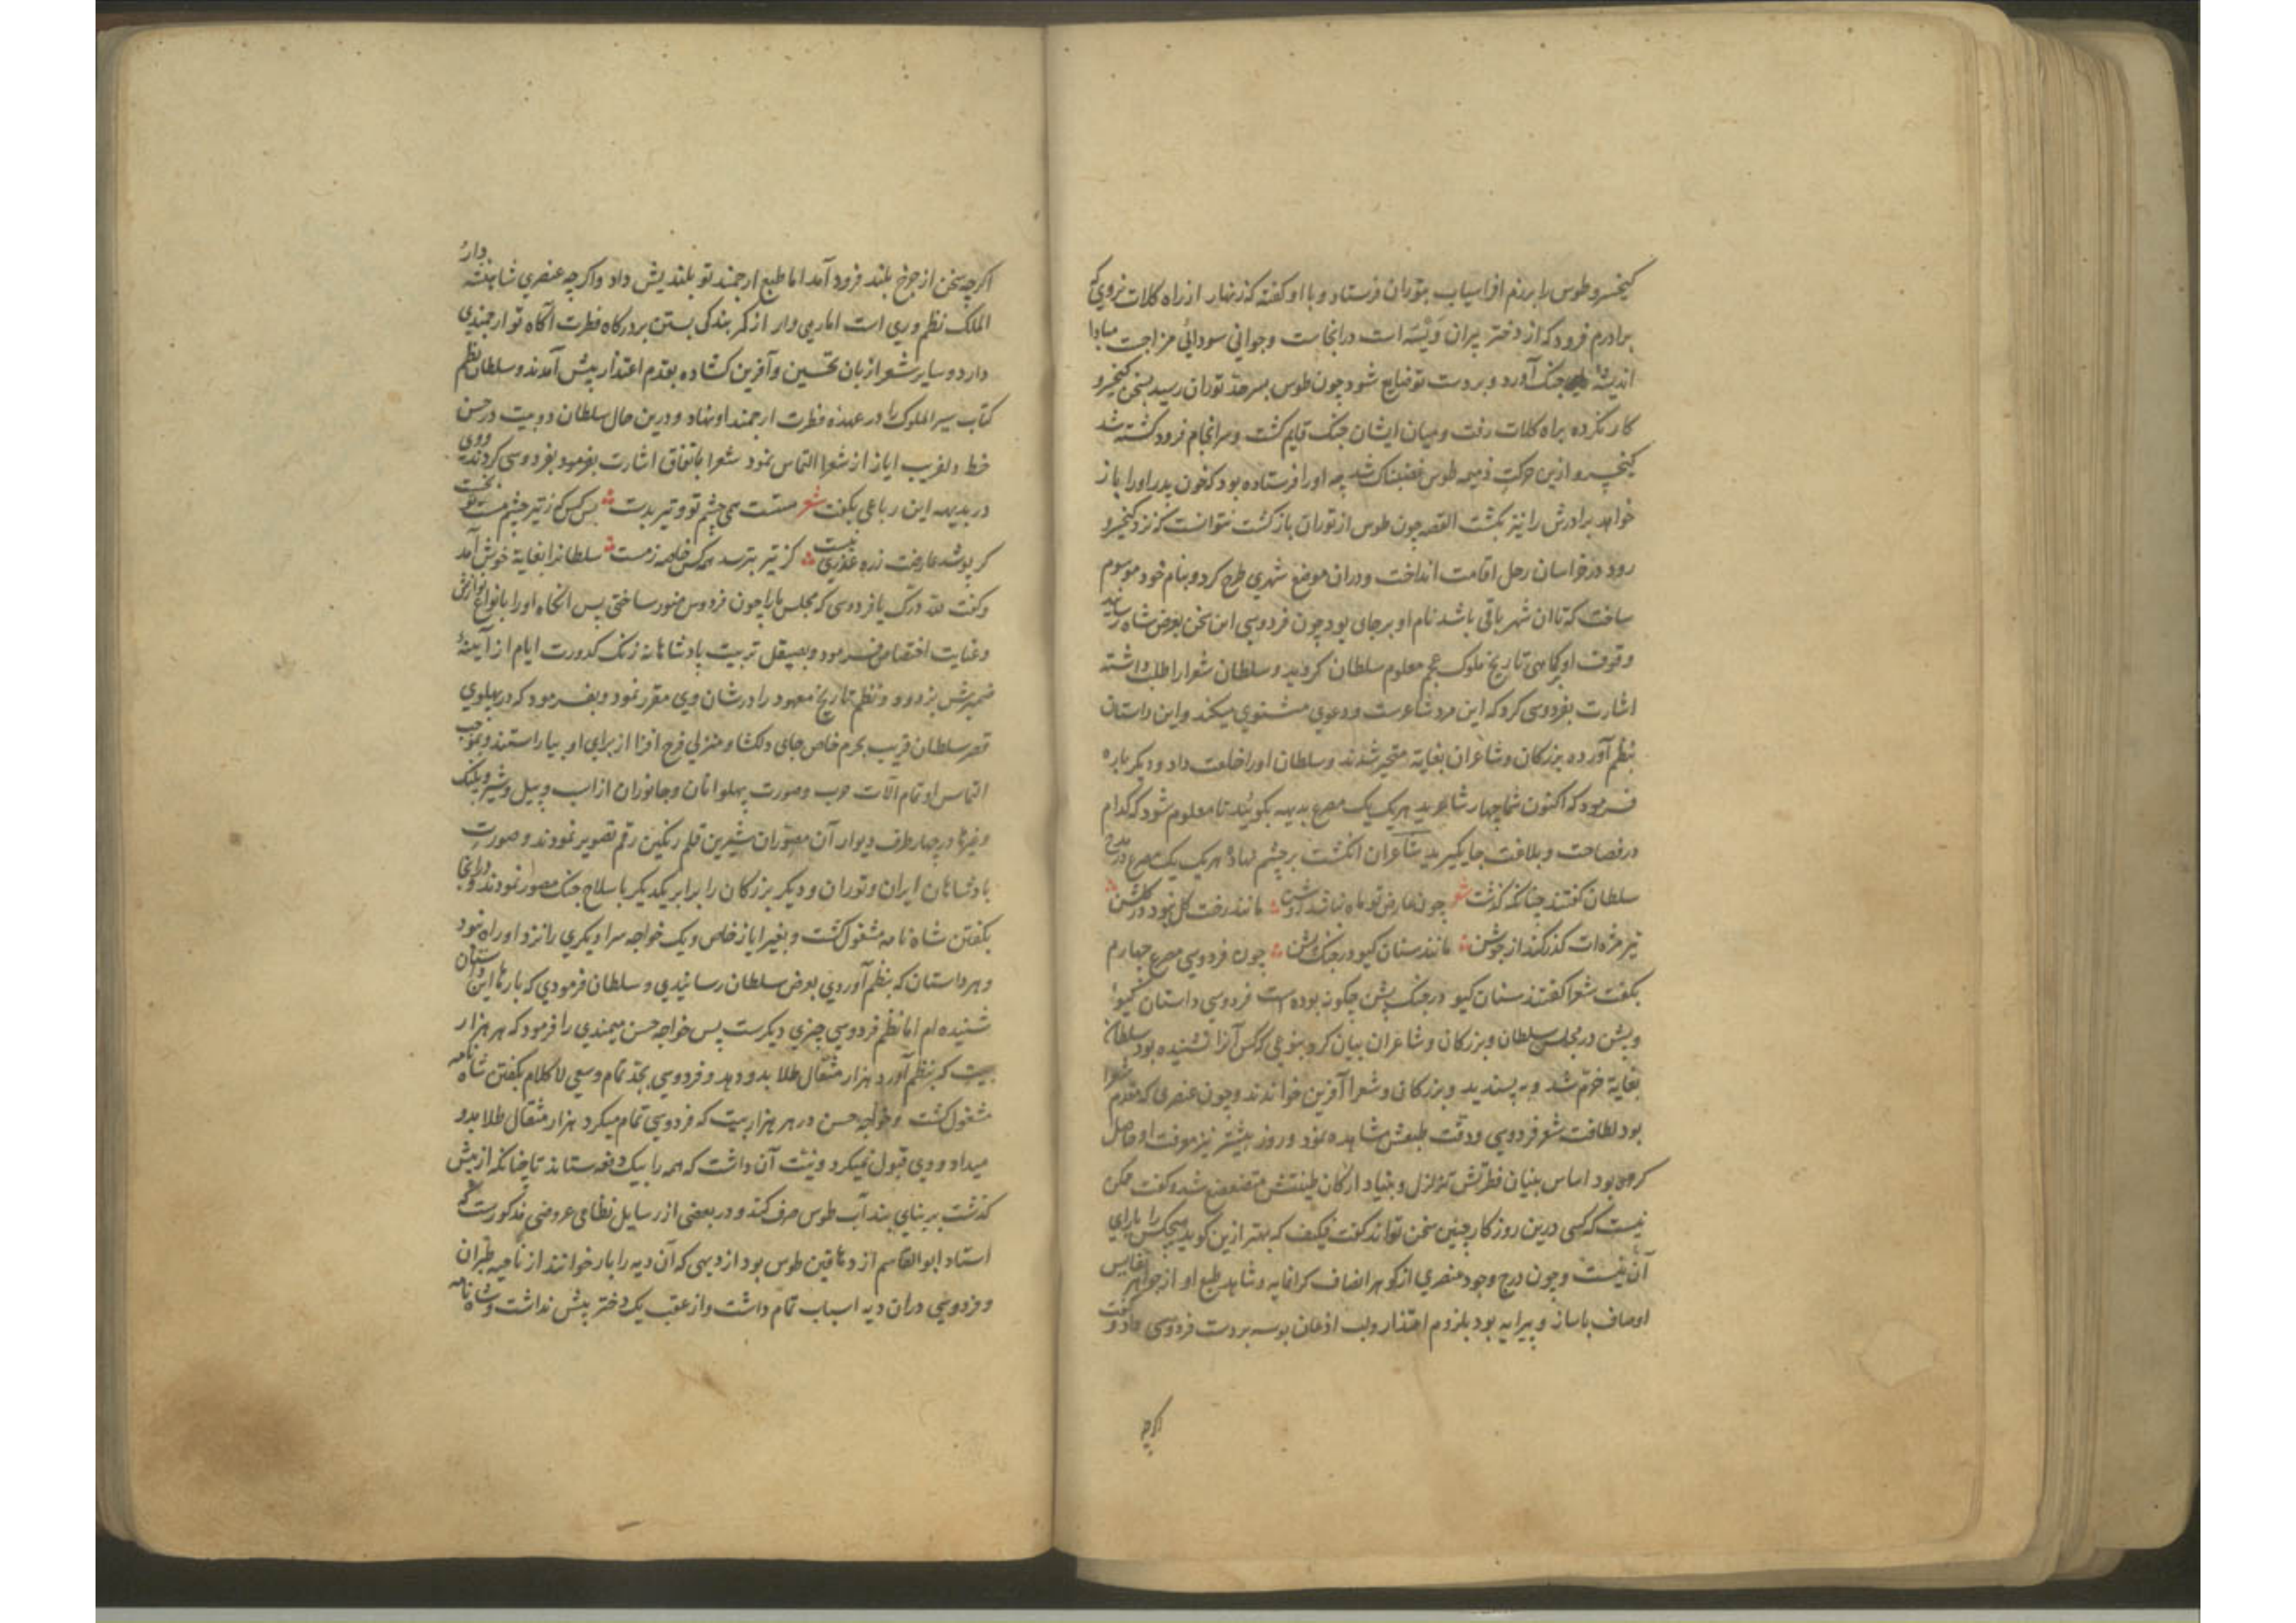 کیخسرو طوس را برزم افراسیاب بتوران فرستاد و با او گفته که زنهار از راه کلات نروی که
برادرم فرود که از دختر پیران ویسه است در آنجاست و جوانی سودائی مزاجست مبادا
اندیشهٔ جنک آورد و بر دست تو ضایع شود چون طوس بسرحد توران رسید بسخن کیخسرو
کار نکرده براه کلات رفت و میان ایشان جنک قایم کشت و سرانجام فرود کشته شد
کیخسرو ازین حرکت ذمیمه طوس غضبناک شد چه او را فرستاده بود که خون پدر او را باز
خواهد برادرش را نیز بکشت القصه چون طوس از توران باز کشت نتوانست که نزد کیخسرو
رود در خراسان رحل اقامت انداخت و در آن موضع شهری طرح کرد و بنام خود موسوم
ساخت که تا ان شهر باقی باشد نام او برجای بود چون فردوسی این سخن بعرض شاه رسانید
وقوف او بکاهی تاریخ ملوک عجم معلوم سلطان کردید و سلطان شعرا را طلب داشته
اشارت بفردوسی کرد که این مرد شاعرست و دعوی مثنوی میکند و این داستان
بنظم آورده بزرکان و شاعران بغایة متحیر شدند و سلطان او را خلعت داد و دیکر باره
فرمود که اکنون شما چهار شاعرید هر یک یک مصرع بدیهه بکوئید تا معلوم شود که کدام
در فصاحت و بلاغت جایکیرید شاعران انکشت بر چشم نهاده هر یک یک مصرع در مدح
سلطان کفتند چنانکه کذشت شعر چون عارض تو ماه نباشد روشن مانند رخت کل نبود در کلشن
تیر مژه‌ات کذر کند از جوشن مانند سنان کیو در جنک پشن چون فردوسی مصرع چهارم
بکفت شعرا کفتند سنان کیو در جنک پشن چکونه بوده است فردوسی داستان کیو
و پشن در مجلس سلطان و بزرکان و شاعران بیان کرد بنوعی که کس آنرا نشنیده بود سلطان
بغایة خرّم شد و به پسندید و بزرکان و شعرا آفرین خواندند و چون عنصری که مقدم شعرا
بود لطافت شعر فردوسی و دقت طبعش مشاهده نمود و روز بیشتر نیز معرفت او حاصل
کرده بود اساس بنیان فطرتش متزلزل و بنیاد ارکان طینتش متضعضع شد و کفت ممکن
نیست که کسی درین روزکار چنین سخن تواند کفت فکیف که بهتر ازین کوید هیچکس را یارای
آن نیست و چون درج وجود عنصری از کوهر انصاف کرانمایه و شاهد طبع او از جواهر نفایس
اوصاف باساز و پیرایه بود بلزوم اعتذار و لب اذعان بوسه بر دست فردوسی داد و کفت
اکرچه
اکرچه سخن از چرخ بلند فرود آمد اما طبع ارجمند تو بلندیش داد و اکرچه عنصری شاهنشه دار
الملک نظم وری است اما رهی وار از کمر بندکی بستن بر درکاه فطرت آکاه تو ارجمندی
دارد و سایر شعرا زبان تحسین و آفرین کشاده بقدم اعتذار پیش آمدند و سلطان نظم
کتاب سیر الملوک را در عهدهٔ فطرت ارجمند او نهاد و درین حال سلطان دو بیت در حسن
خط دلفریب ایاز از شعرا التماس نمود شعرا باتفاق اشارت بفردوسی کردند و وی
در بدیهه این رباعی بکفت شعر مستست همی چشم تو و تیر بدست بس کس که ز تیر چشم مست تو بخست
کر پوشد عارضت زره عذری نیست کز تیر بترسد همه کس خاصه ز مست سلطانرا بغایة خوش آمد
و کفت لله درک یا فردوسی که مجلس ما را چون فردوس منور ساختی پس انکاه او را بانواع نوازش
و غنایت اختصاص فرمود و بصیقل تربیت پادشاهانه زنک کدورت ایام از آیینهٔ
ضمیرش بزدود و نظم تاریخ معهود را در شان وی مقرر نمود و بفرمود که در پهلوی
قصر سلطان قریب بحرم خاص جای دلکشا و منزلی فرح افزا از برای او بیاراستند و بموجب
التماس او تمام آلات حرب و صورت پهلوانان و جانوران از اسب و پیل و شیر و پلنک
و غیرها در چهار طرف دیوار آن مصوران شیرین قلم رنکین رقم تصویر نمودند و صورت
پادشاهان ایران و توران و دیکر بزرکان را برابر یکدیکر با سلاح جنک مصور نمودند و در آنجا
بکفتن شاه نامه مشغول کشت و بغیر ایاز خاص و یک خواجه سرا دیکری را نزد او راه نبود
و هر داستان که بنظم آوردی بعرض سلطان رسانیدی و سلطان فرمودی که بارها این داستان
شنیده ام اما نظم فردوسی چیزی دیکرست پس خواجه حسن میمندی را فرمود که هر هزار
بیت که بنظم آورد هزار مثقال طلا بدو دهد و فردوسی بجد تمام و سعی لا کلام بکفتن شاه نامه
مشغول کشت و خواجه حسن در هر هزار بیت که فردوسی تمام میکرد هزار مثقال طلا بدو
میداد و وی قبول نمیکرد و نیت آن داشت که همه را بیک دفعه ستاند تا چنانکه از پیش
کذشت بر بنای بند آب طوس صرف کند و در بعضی از رسایل نظامی عروضی مذکورست که
استاد ابوالقاسم از دهاقین طوس بود از دیهی که آن دیه را باژ خوانند از ناحیه طبران
و فردوسی در ان دیه اسباب تمام داشت و از عقب یک دختر بیش نداشت و شاه نامه